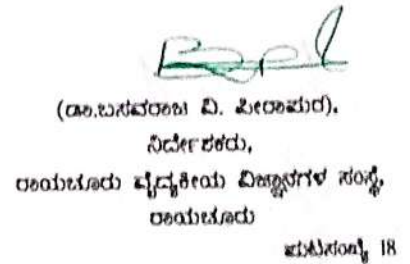 (ಡಾ.ಬಸವರಾಜ ವಿ. ಪೀರಾಪುರ).
ನಿರ್ದೇಶಕರು,
ರಾಯಚೂರು ವೈದ್ಯಕೀಯ ವಿಜ್ಞಾನಗಳ ಸಂಸ್ಥೆ,
ರಾಯಚೂರು
ಪುಟಸಂಖ್ಯೆ 18